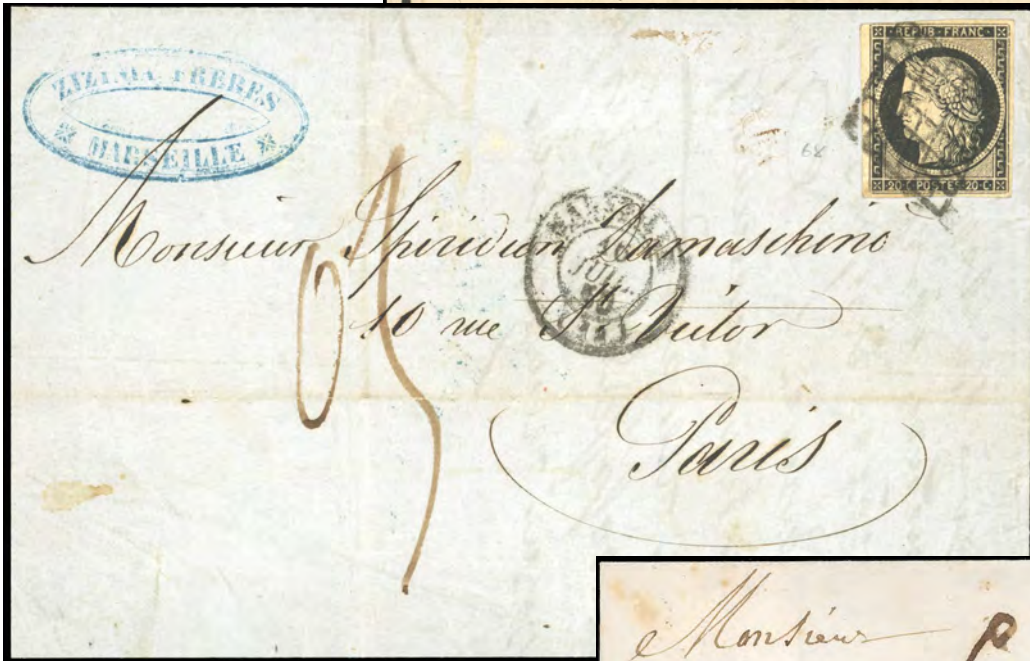 ZIZINIA FRERES
MARSEILLE
REPUB·FRANC
20·C·POSTES·20·C
68
Monsieur Spiridion Damaschino
10 rue St Victor
Paris
JUIL.
50
Monsieur